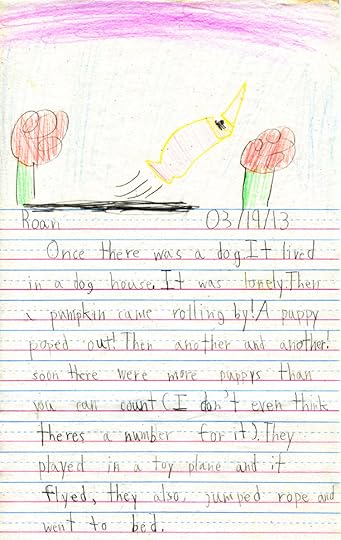 Roan 03/19/13
Once there was a dog. It lived
in a dog house. It was lonely. Then
a pumpkin came rolling by! A puppy
poped out! Then another and another!
soon there were more puppys than
you can count (I don't even think
theres a number for it). They
played in a toy plane and it
flyed, they also, jumped rope and
went to bed.